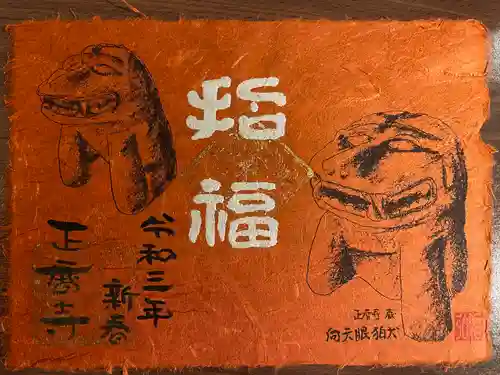 招福
令和三年
新春
正應寺
正應寺 蔵
向天眼狛犬